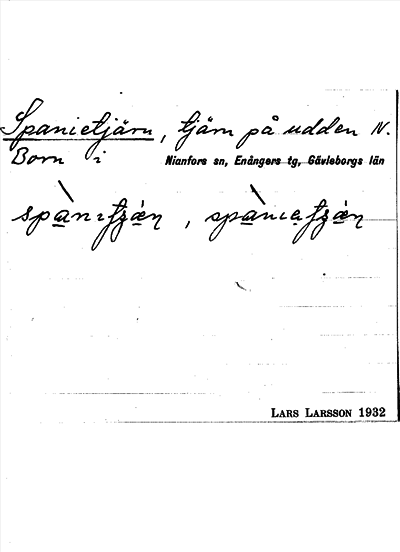 Spanietjärn, tjärn på udden N.
Born i Nianfors sn, Enångers tg, Gävleborgs län
LARS LARSSON 1932